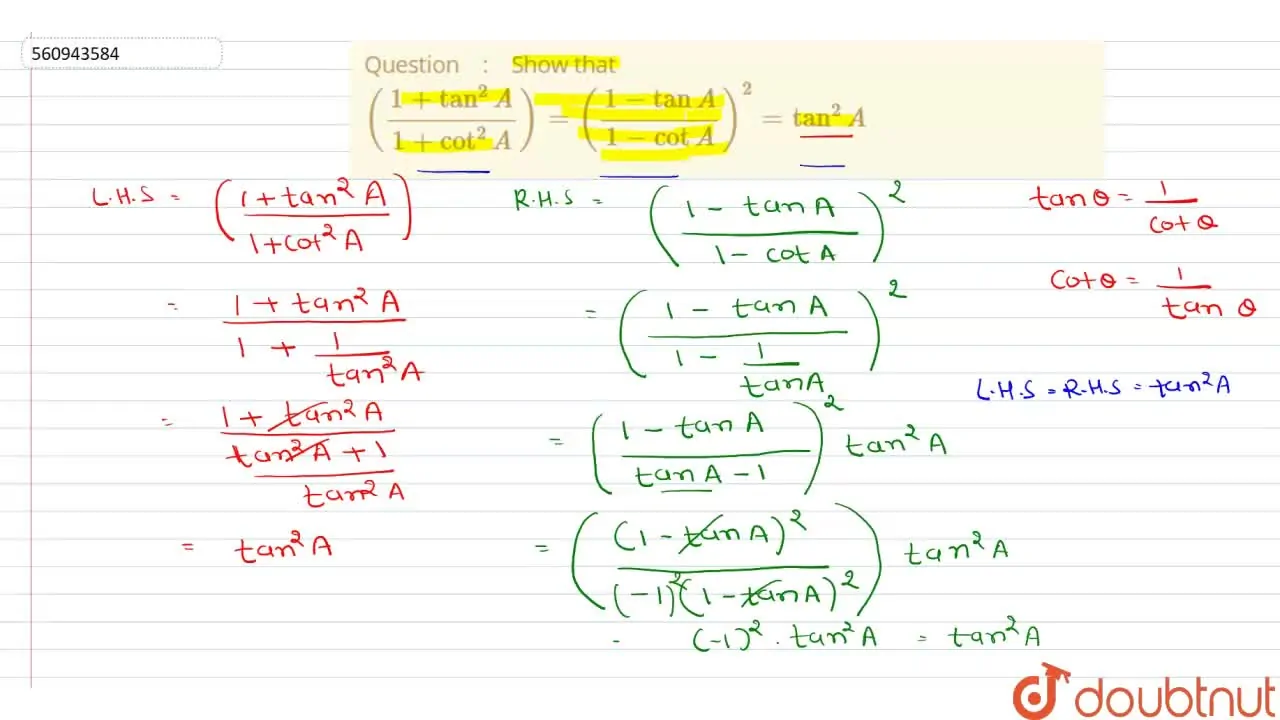 560943584
Question : Show that
(1 + tan² A / 1 + cot² A) = (1 − tan A / 1 − cot A)² = tan² A
L.H.S = (1 + tan² A / 1 + cot² A)
= 1 + tan² A / 1 + 1 / tan² A
= 1 + tan² A / tan² A + 1 / tan² A
= tan² A
R.H.S = (1 - tan A / 1 - cot A)²
= (1 - tan A / 1 - 1 / tan A)²
= (1 - tan A / tan A - 1)² tan² A
= ((1 - tan A)² / (-1)² (1 - tan A)²) tan² A
- (-1)² . tan² A = tan² A
tan θ = 1 / cot θ
cot θ = 1 / tan θ
L.H.S = R.H.S = tan² A
doubtnut